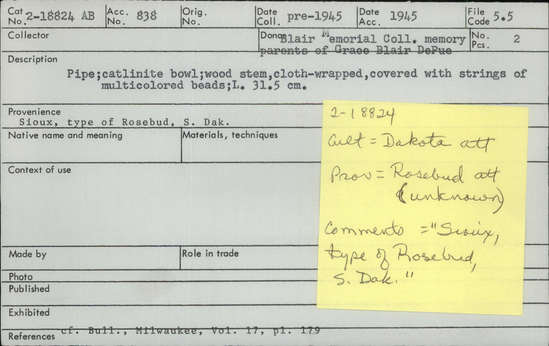 Cat. No. 2-18824 AB
Acc. No. 838
Orig. No.
Date Coll. pre-1945
Acc. Date 1945
File Code 5.5
Collector
Donor Blair Memorial Coll. memory
parents of Grace Blair DePue
No. Pcs. 2
Description
Pipe;catlinite bowl;wood stem,cloth-wrapped,covered with strings of
multicolored beads;L. 31.5 cm.
Provenience
Sioux, type of Rosebud, S. Dak.
Native name and meaning
Materials, techniques
Context of use
Made by
Role in trade
Photo
Published
Exhibited
References cf. Bull., Milwaukee, Vol. 17, pl. 179
2-18824
Cult = Dakota att
Prov = Rosebud att
(unknown)
Comments = "Sioux,
type of Rosebud,
S. Dak."